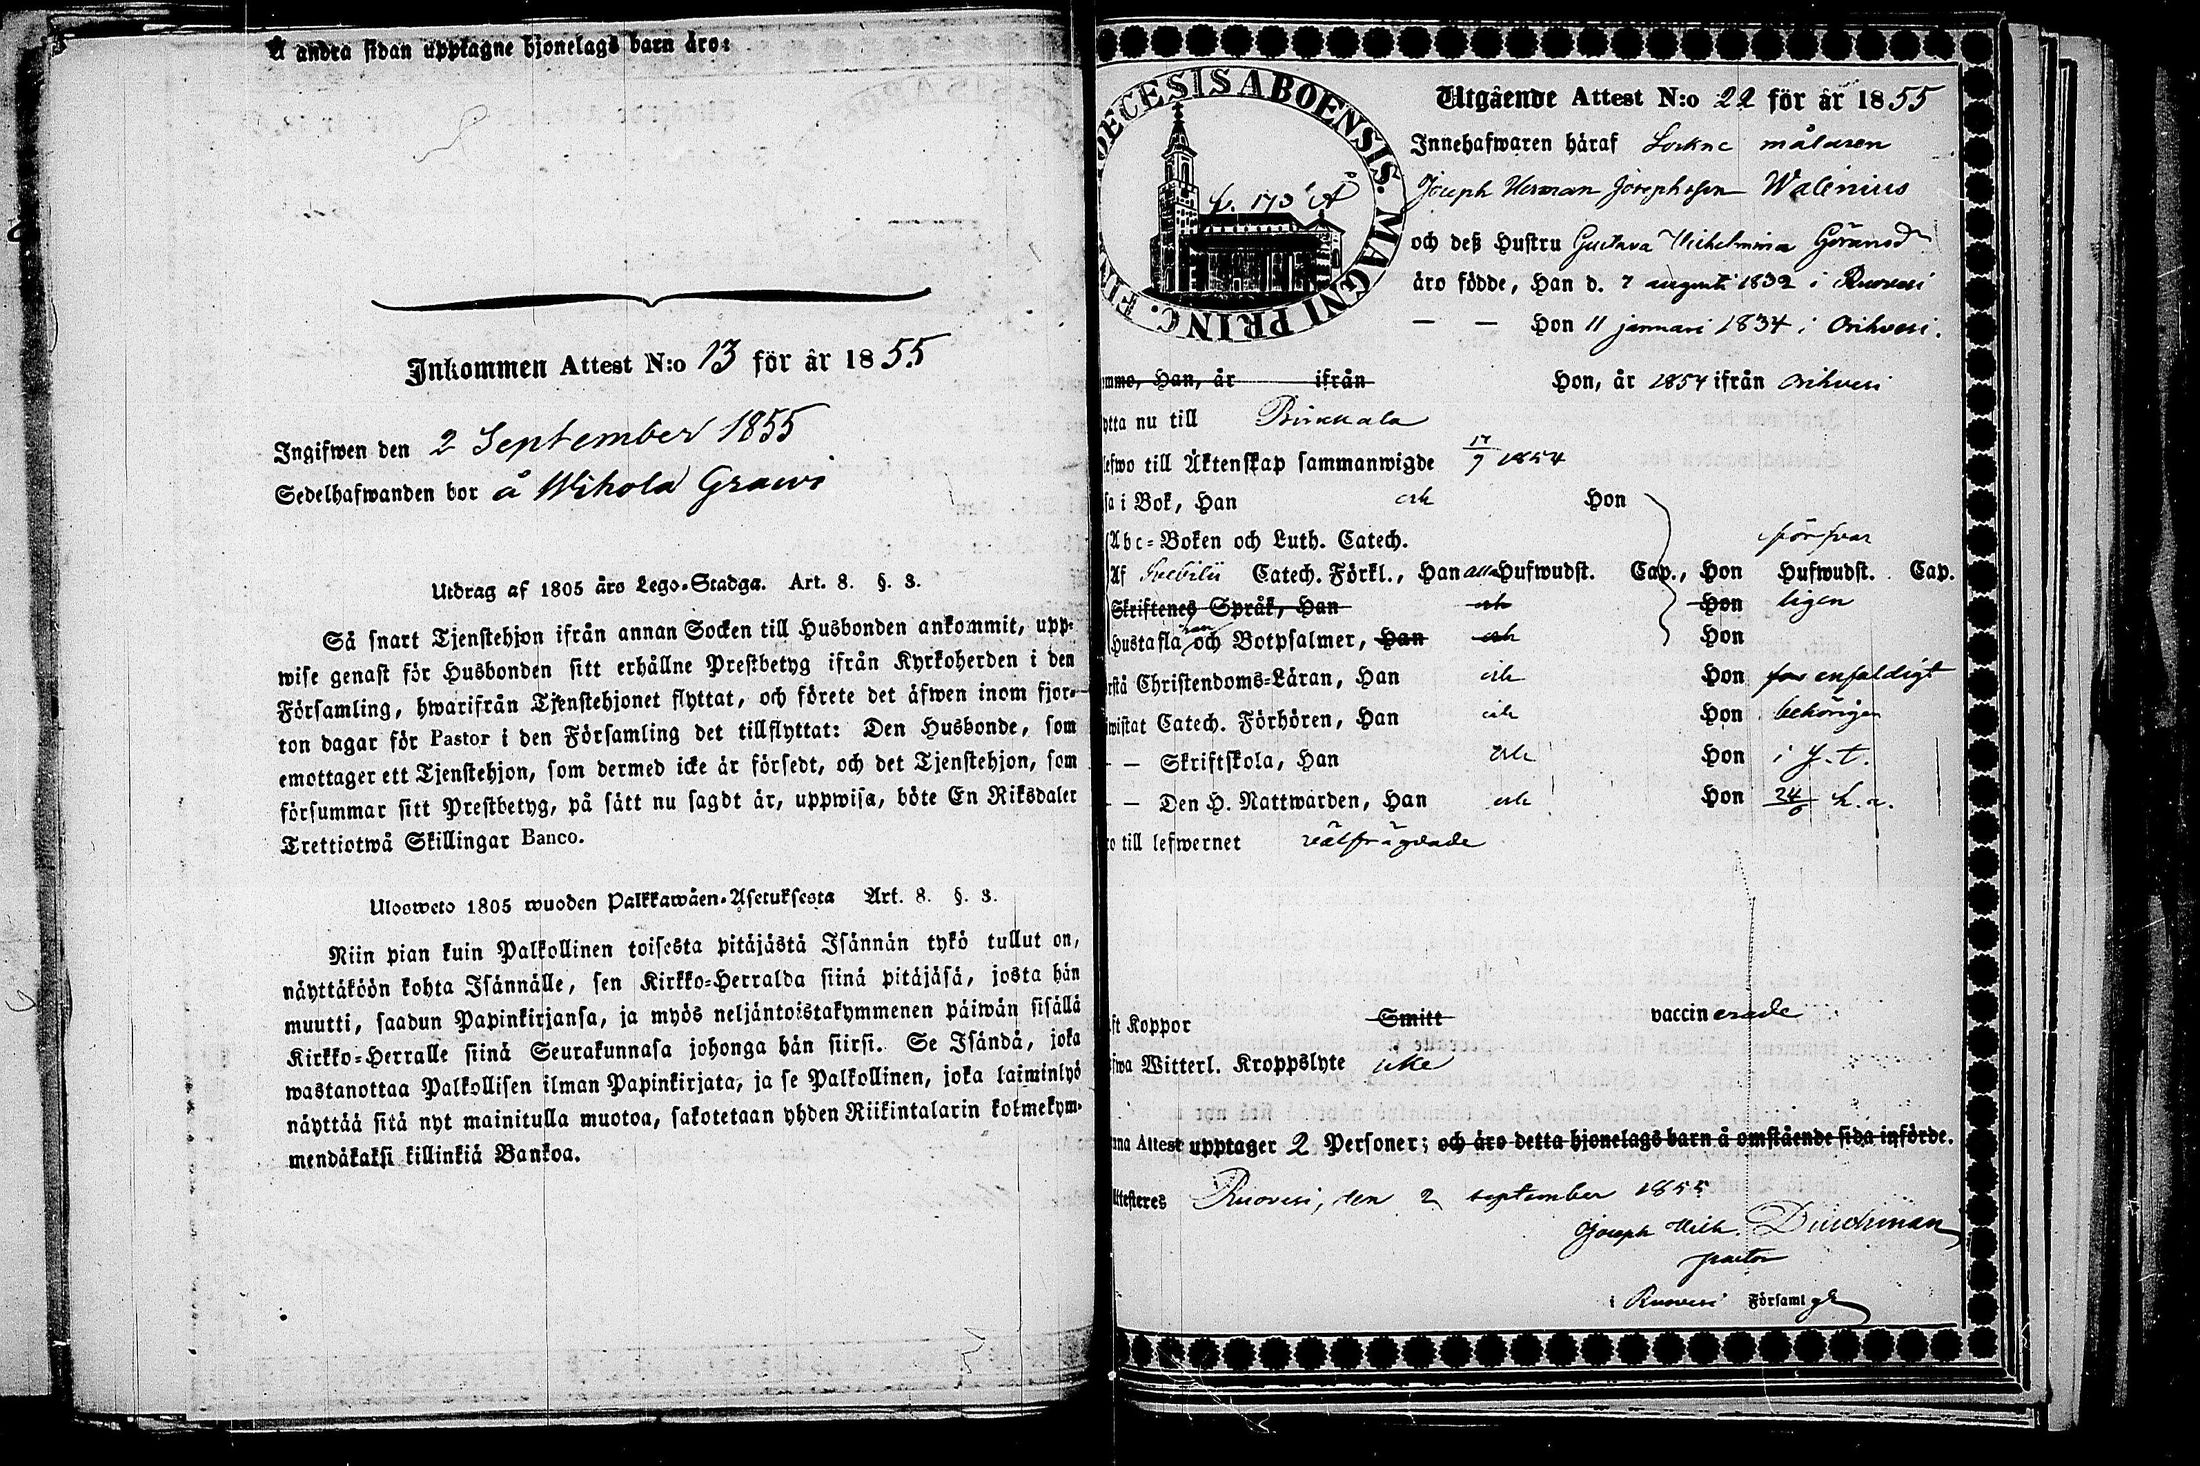 Å andra sidan upptagne hjonelags barn äro:
Inkommen Attest N:o 13 för år 1855
Ingifwen den 2 September 1855
Sedelhafwanden bor å Wihola Grawi
Utdrag af 1805 års Lego-Stadga. Art. 8. §. 3.
Så snart Tjenstehjon ifrån annan Socken till Husbonden ankommit, upp-
wise genast för Husbonden sitt erhållne Prestbetyg ifrån Kyrkoherden i den
Församling, hwarifrån Tjenstehjonet flyttat, och förete det äfwen inom fjor-
ton dagar för Pastor i den Församling det tillflyttat: Den Husbonde, som
emottager ett Tjenstehjon, som dermed icke är försedt, och det Tjenstehjon, som
försummar sitt Prestbetyg, på sätt nu sagdt är, uppwisa, böte En Riksdaler
Trettiotwå Skillingar Banco.
Ulosweto 1805 wuoden Palkkawäen-Asetuksesta Art. 8. §. 3.
Niin pian kuin Palkollinen toisesta pitäjästä Isännän tykö tullut on,
näyttäköön kohta Isännälle, sen Kirkko-Herralda siinä pitäjäsä, josta hän
muutti, saadun Papinkirjansa, ja myös neljäntoistakymmenen päiwän sisällä
Kirkko-Herralle siinä Seurakunnasa johonga hän siirsi. Se Isändä, joka
wastanottaa Palkollisen ilman Papinkirjata, ja se Palkollinen, joka laiminlyö
näyttää sitä nyt mainitulla muotoa, sakotetaan yhden Riikintalarin kolmekym-
mendäkaksi killinkiä Bankoa.
DECESIS ABOENSIS. MAGNI PRINC. FIN
p. 173 Å
Utgående Attest N:o 22 för år 1855
Innehafwaren häraf Sockne målaren
Joseph Herman Josephsson Walenius
och deß Hustru Gustava Wilhelmina Göransdr
äro födde, Han d. 7 augusti 1832 i Ruovesi
— — Hon 11 januari 1834 i Orihvesi.
mmo, Han, år ifrån Hon, år 1854 ifrån Orihvesi
ytta nu till Birkkala
lefwo till Äktenskap sammanwigde 17/9 1854
sa i Bok, Han och Hon
Abc-Boken och Luth. Catech. förswar
Af Svebilii Catech. Förkl., Han alla Hufwudst. Cap., Hon Hufwudst. Cap.
Skriftenes Språk, Han och Hon ligen
Hustafla och Botpsalmer, Han och Hon
rstå Christendoms-Läran, Han och Hon enfaldigt
iwistat Catech. Förhören, Han och Hon behörigen
— — Skriftskola, Han och Hon i y. t.
— — Den H. Nattwarden, Han och Hon 24/6 h. a.
ro till lefwernet välfrägdade
ft Koppor Smitt vaccinerade
fwa Witterl. Kroppslyte icke
nna Attest upptager 2 Personer; och äro detta hjonelags barn å omstående sida införde.
Attesteres Ruovesi, den 2 september 1855
Joseph Wilh. Durchman
pastor
i Ruovesi Församlgr